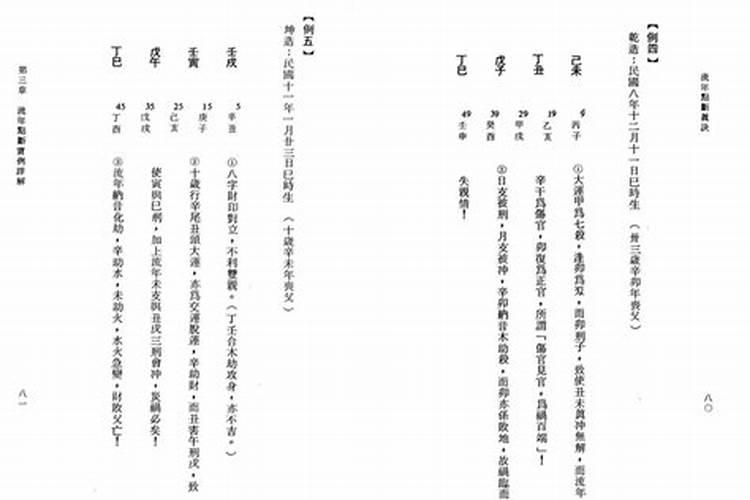 流年點斷真訣
【例四】
乾造：民國八年十二月十一日巳時生　（卅三歲辛卯年喪父）
己未　9丙子　①大運甲為七殺，逢卯為刃，而卯刑子，致使丑未眞冲無解，而流年
丁丑　19乙亥　辛干為傷官，卯復為正官，所謂「傷官見官，為禍百端」！
29甲戌
戊子　39癸酉　②日支被刑，月支被冲，辛卯納音木助殺，而卯亦係敗地，故禍臨而
丁巳　49壬申　失親情！
八〇
【例五】
坤造：民國十一年一月廿三日巳時生　（十歲辛未年喪父）
壬戌　5辛丑　①八字財印對立，不利雙親。（丁壬合木劫攻身，亦不吉。）
壬寅　15庚子　②十歲行辛尾丑頭大運，亦為交運脫運，辛助財，而丑害午刑戌，致
25己亥
戊午　35戊戌　使寅與巳刑，加上流年未支與丑戌三刑會冲，災禍必矣！
丁巳　45丁酉　③流年納音化劫，辛助水，未助火，水火急變，財敗父亡！
第三章　流年點斷實例詳解
八一